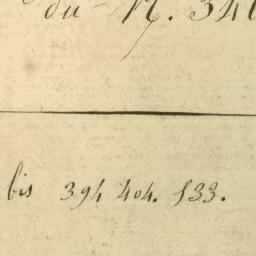 du N. 340
bis 394 404. 533.